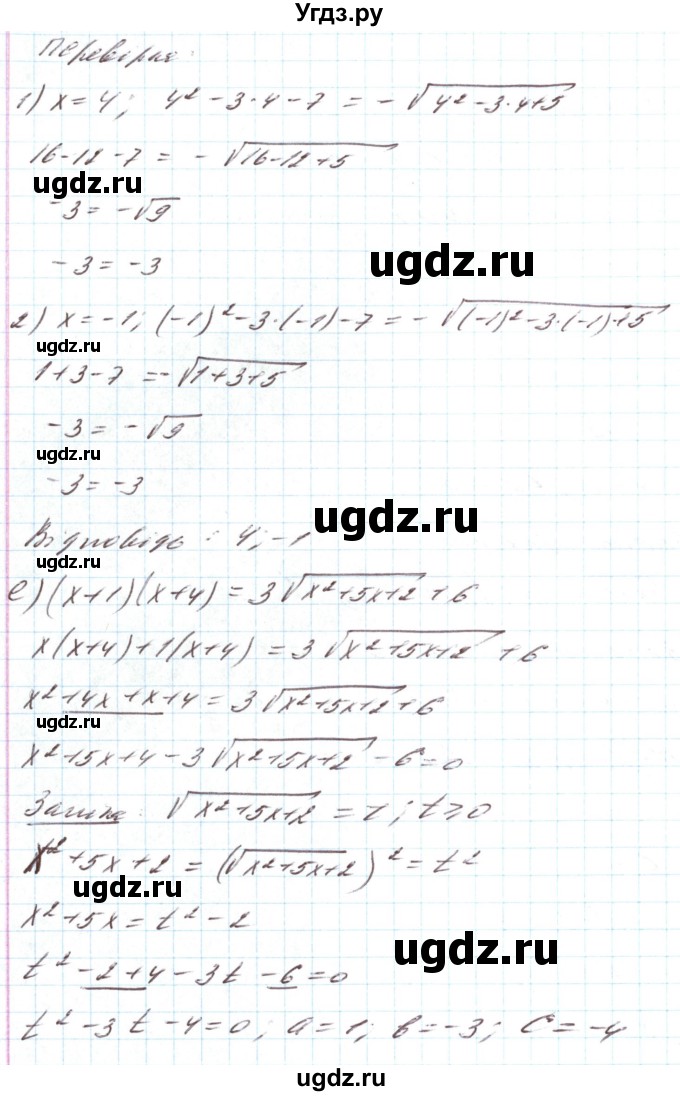 Угдз.ру
Перевірка:
1) x = 4; 4² - 3·4 - 7 = -√(4² - 3·4 + 5)
16 - 12 - 7 = -√(16 - 12 + 5)
ugdz.ru
-3 = -√9
ugdz.ru
-3 = -3
2) x = -1; (-1)² - 3·(-1) - 7 = -√((-1)² - 3·(-1) + 5)
ugdz.ru
1 + 3 - 7 = -√(1 + 3 + 5)
-3 = -√9
ugdz.ru
-3 = -3
ugdz.ru
Відповідь: 4; -1
е) (x+1)(x+4) = 3√(x²+5x+2) + 6
x(x+4) + 1(x+4) = 3√(x²+5x+2) + 6
x² + 4x + x + 4 = 3√(x²+5x+2) + 6
ugdz.ru
x² + 5x + 4 - 3√(x²+5x+2) - 6 = 0
Заміна: √(x²+5x+2) = t; t ≥ 0
x² + 5x + 2 = (√(x²+5x+2))² = t²
ugdz.ru
x² + 5x = t² - 2
ugdz.ru
t² - 2 + 4 - 3t - 6 = 0
t² - 3t - 4 = 0; a = 1; b = -3; c = -4
ugdz.ru